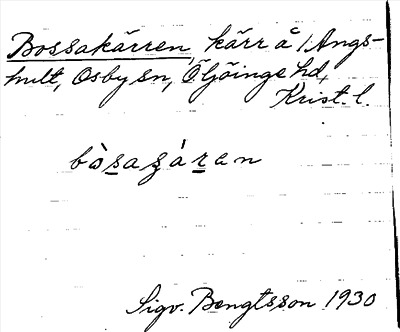 Bossakärren, kärr å Angs-
hult, Osby sn, Ö Göinge hd,
Krist. l.
bòsazáren
Sigv. Bengtsson 1930